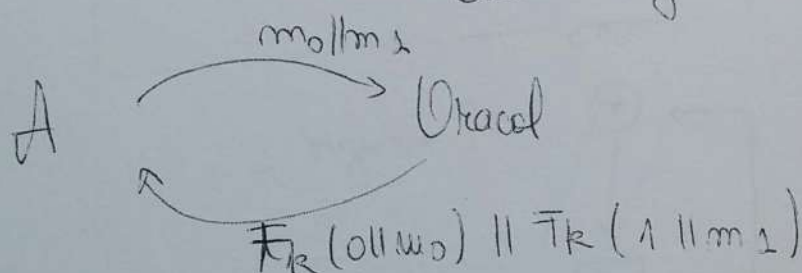 m0||m1
A
Oracol
Fk (0||m0) || Fk (1||m1)